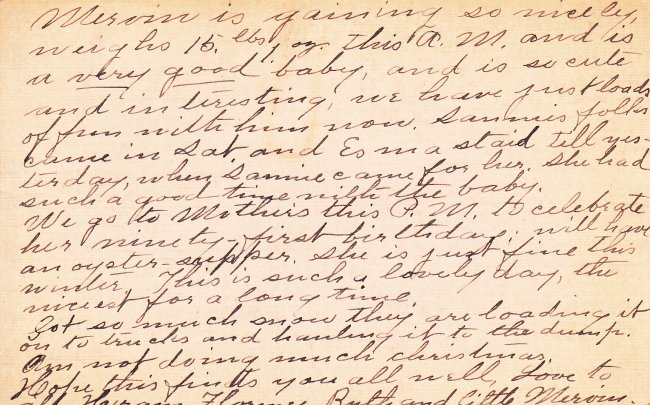 Mervin is gaining so nicely,
weighs 15. lbs, 1 oz. this A. M. and is
a very good baby, and is so cute
and interesting, we have just loads
of fun with him now. Sannies folks
came in Sat. and Esma staid till yes-
terday, when Sannie came for her, she had
such a good time with the baby.
We go to Mothers this P. M. to celebrate
her ninety-first birthday; will have
an oyster-supper. She is just fine this
winter. This is such a lovely day, the
nicest for a long time.
Got so much snow they are loading it
on to trucks and hauling it to the dump.
Am not doing much christmas.
Hope this finds you all well, Love to
all. Florence, Ruth and little Mervin.